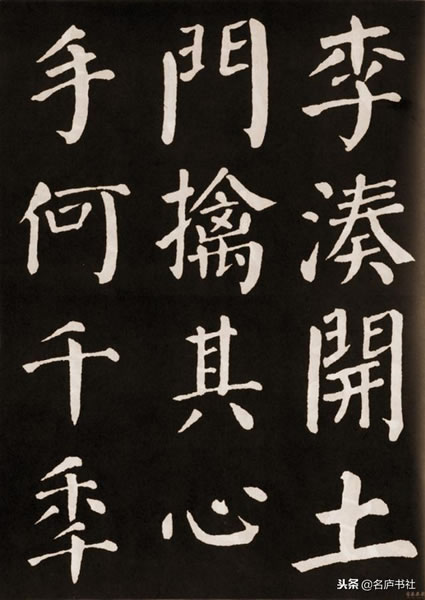 李湊開土
門擒其心
手何千秊
头条 @名庐书社